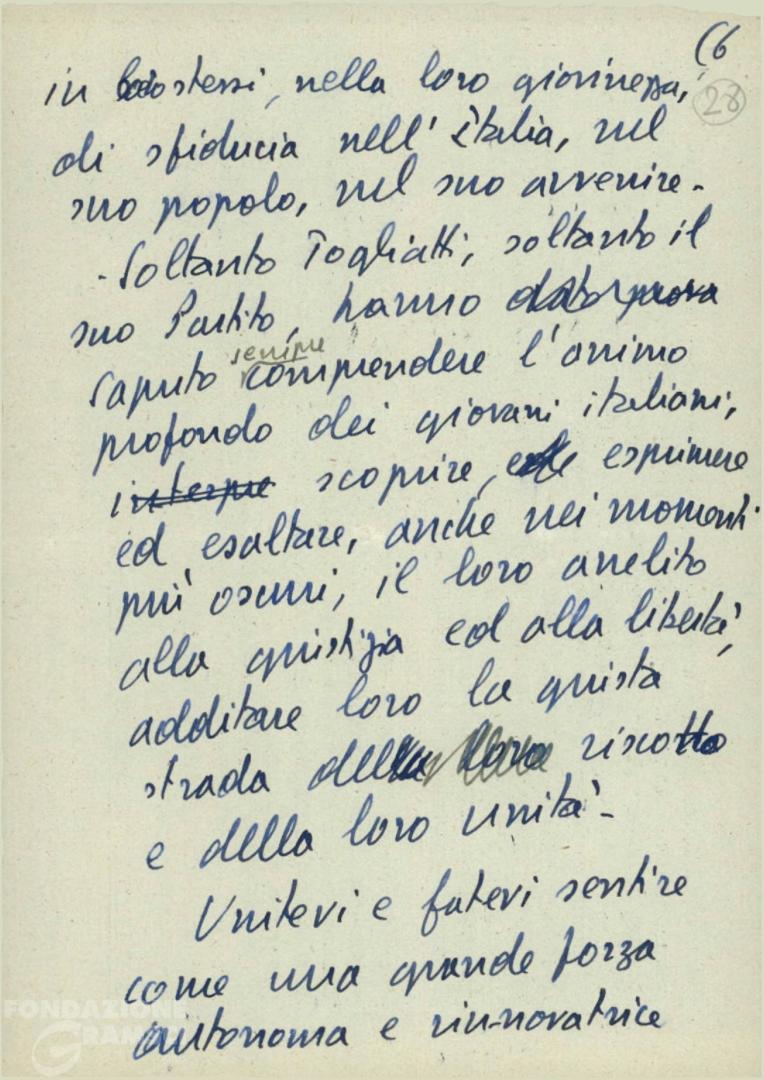 (6
28
in loro stessi, nella loro giovinezza,
di sfiducia nell'Italia, nel
suo popolo, nel suo avvenire.
- Soltanto Togliatti, soltanto il
suo Partito, hanno dato prova
sempre
saputo comprendere l'animo
profondo dei giovani italiani,
interpre scoprire, ed esprimere
ed esaltare, anche nei momenti
più oscuri, il loro anelito
alla giustizia ed alla libertà,
additare loro la giusta
strada della loro riscatto
e della loro unità.
Unitevi e fatevi sentire
come una grande forza
autonoma e rinnovatrice
FONDAZIONE
GRAMSCI